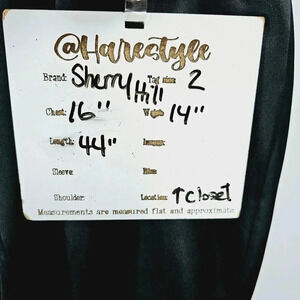 @Harecstyle
Brand: Sherry Hill Tag size: 2
Chest: 16" Waist: 14"
Length: 44" Inseam:
Sleeve: Rise:
Shoulder: Location: ↑ closet
Measurements are measured flat and approximate